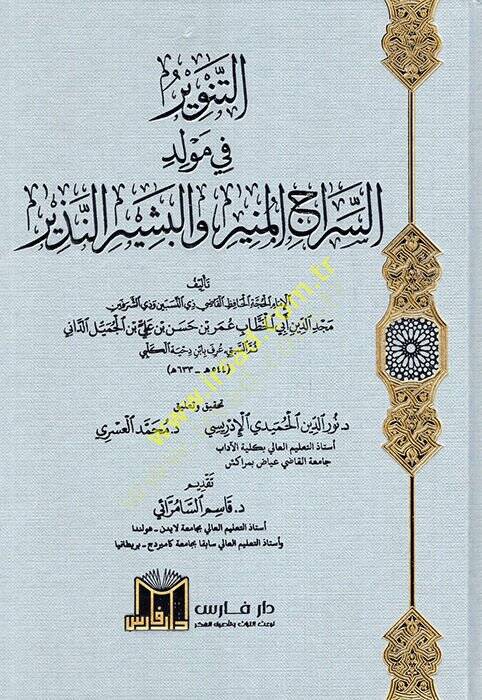 التَّنْوِيرُ
فِي مَوْلِدِ
السِّرَاجِ المُنِيرِ وَالبَشِيرِ النَّذِيرِ
تَأليفُ
الإمَام الحُجَّة الحَافِظ القَاضِي ذِي النَّسَبَين وَذِي الشَّرَفَين
مَجْد الدِّين أبي الخَطَّاب عُمَر بن حَسَن بن عَلِيّ بن الجُمَيّل الدَّاني
ثمّ السَّبتي عُرف بابن دحية الكَلبي
(٥٤٤هـ - ٦٣٣هـ)
تحقيق وتعليق
د. نُور الدّين الحُميدي الإدريسي د. محمّد العسري
أستاذ التعليم العالي بكلية الآداب
جامعة القاضي عياض بمراكش
تقديم
د. قاسم السّامرّائي
أستاذ التعليم العالي بجامعة لايدن - هولندا
وأستاذ التعليم العالي سابقا بجامعة كامبردج - بريطانيا
دار فارس
دار فارس
لبعث التراث وتأصيل الفكر